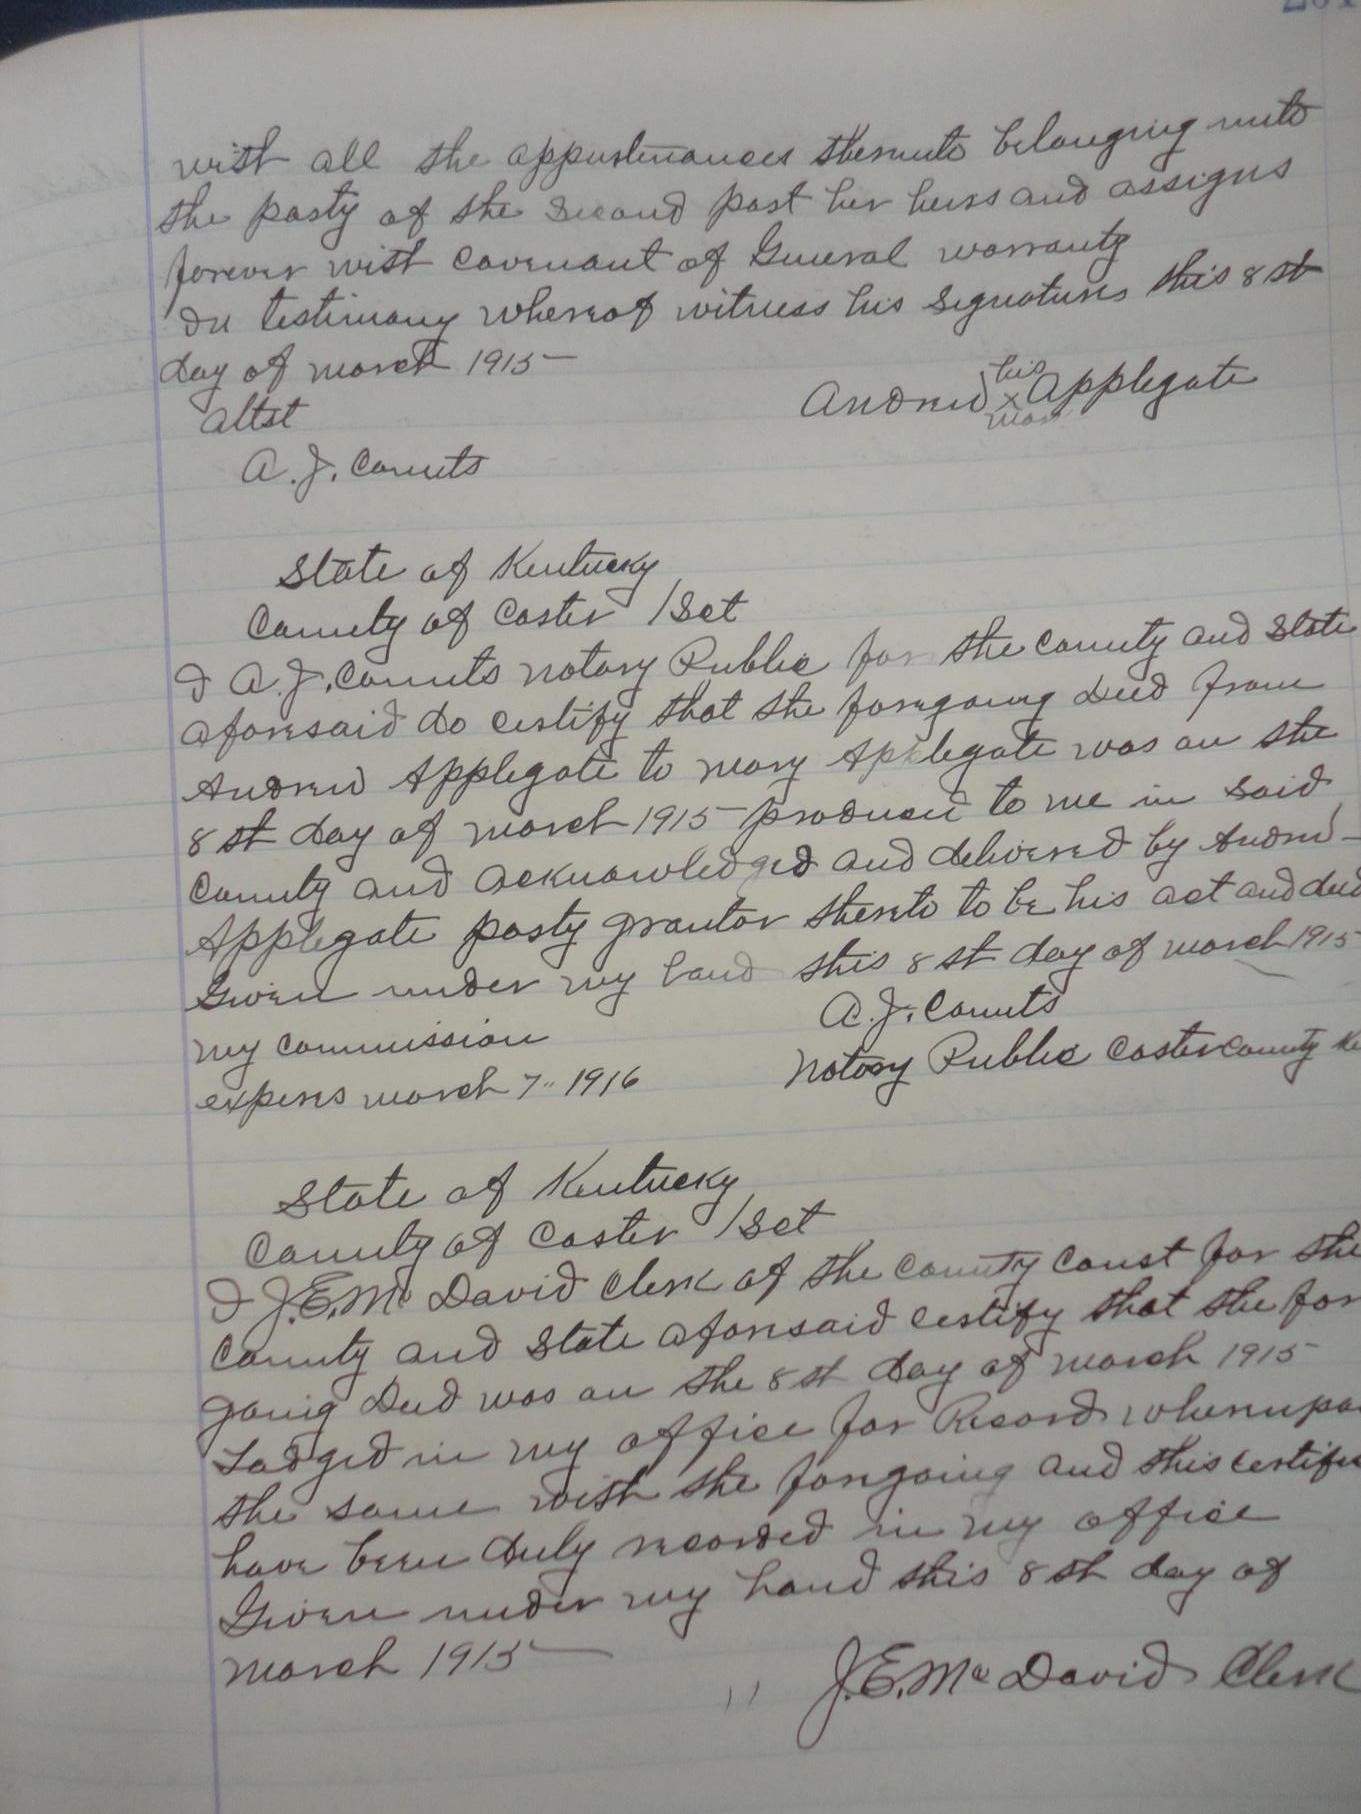 with all the appurtenances thereunto belonging unto
the party of the second part her heirs and assigns
forever with covenant of General warranty
In testimony whereof witness his signatures this 8 st
day of march 1915
his
Andrew x Applegate
mark
attst
A. J. Counts
State of Kentucky
County of Carter / Sct
I A. J. Counts notary Public for the County and State
aforesaid do certify that the foregoing deed from
Andrew Applegate to mary Applegate was on the
8 st day of march 1915 produced to me in said
County and acknowledged and delivered by Andrew
Applegate party grantor thereto to be his act and deed
Given under my hand this 8 st day of march 1915
A. J. Counts
my commission
Notary Public Carter County
expires march 7" 1916
State of Kentucky
County of Carter / Sct
I J. E. Mc David Clerk of the county Court for the
County and State aforesaid certify that the for
going Deed was on the 8 st day of march 1915
Lodged in my office for Record whereupo
the same with the forgoing and this certifi
have been duly recorded in my office
Given under my hand this 8 st day of
march 1915
J. E. Mc David Clerk